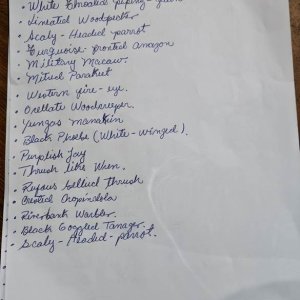 • White throated piping-guan
• Lineated Woodpecker
• Scaly-Headed parrot
• Turquoise-fronted amazon
• Military Macaw.
• Mitred Parakeet
• Western fire-eye.
• Ocellate Woodcreeper.
• Yungas Manakin
• Black Phoebe (White-winged).
• Purplish Jay
• Thrush like Wren.
• Rufous bellied thrush
• Crested Oropendola
• Riverbank Warbler.
• Black Goggled Tanager.
• Scaly-Headed-parrot.